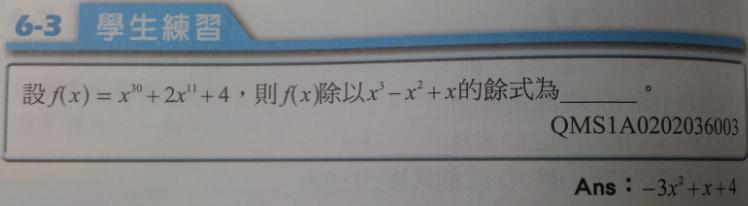 6-3 學生練習
設 f(x) = x³⁰ + 2x¹¹ + 4，則 f(x)除以 x³ − x² + x 的餘式為______。
QMS1A0202036003
Ans：−3x² + x + 4